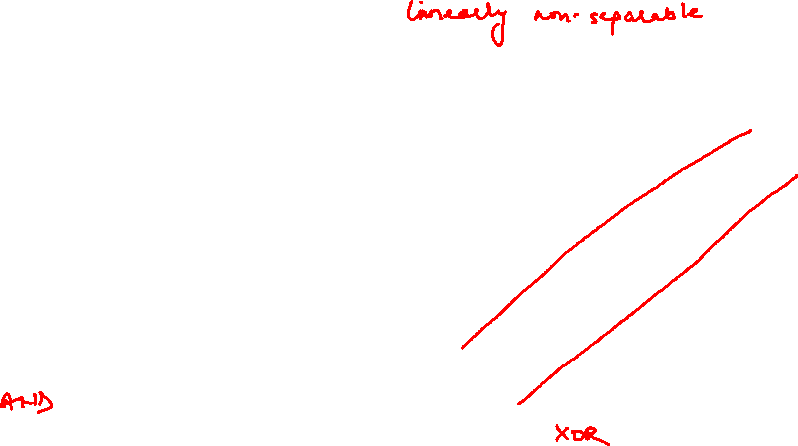 linearly non-separable
AND
XOR